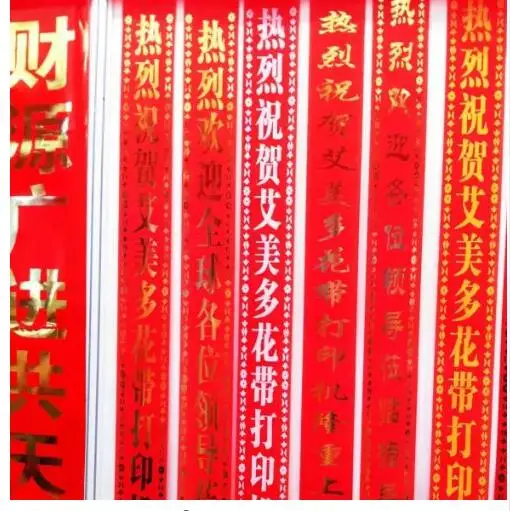 财源广进共天
热烈祝贺艾美多花带打印
热烈欢迎全球各位领导
热烈祝贺艾美多花带打印机
热烈祝贺艾美多花带打印机隆重上
热烈欢迎各位领导莅临指导
热烈祝贺艾美多花带打印机